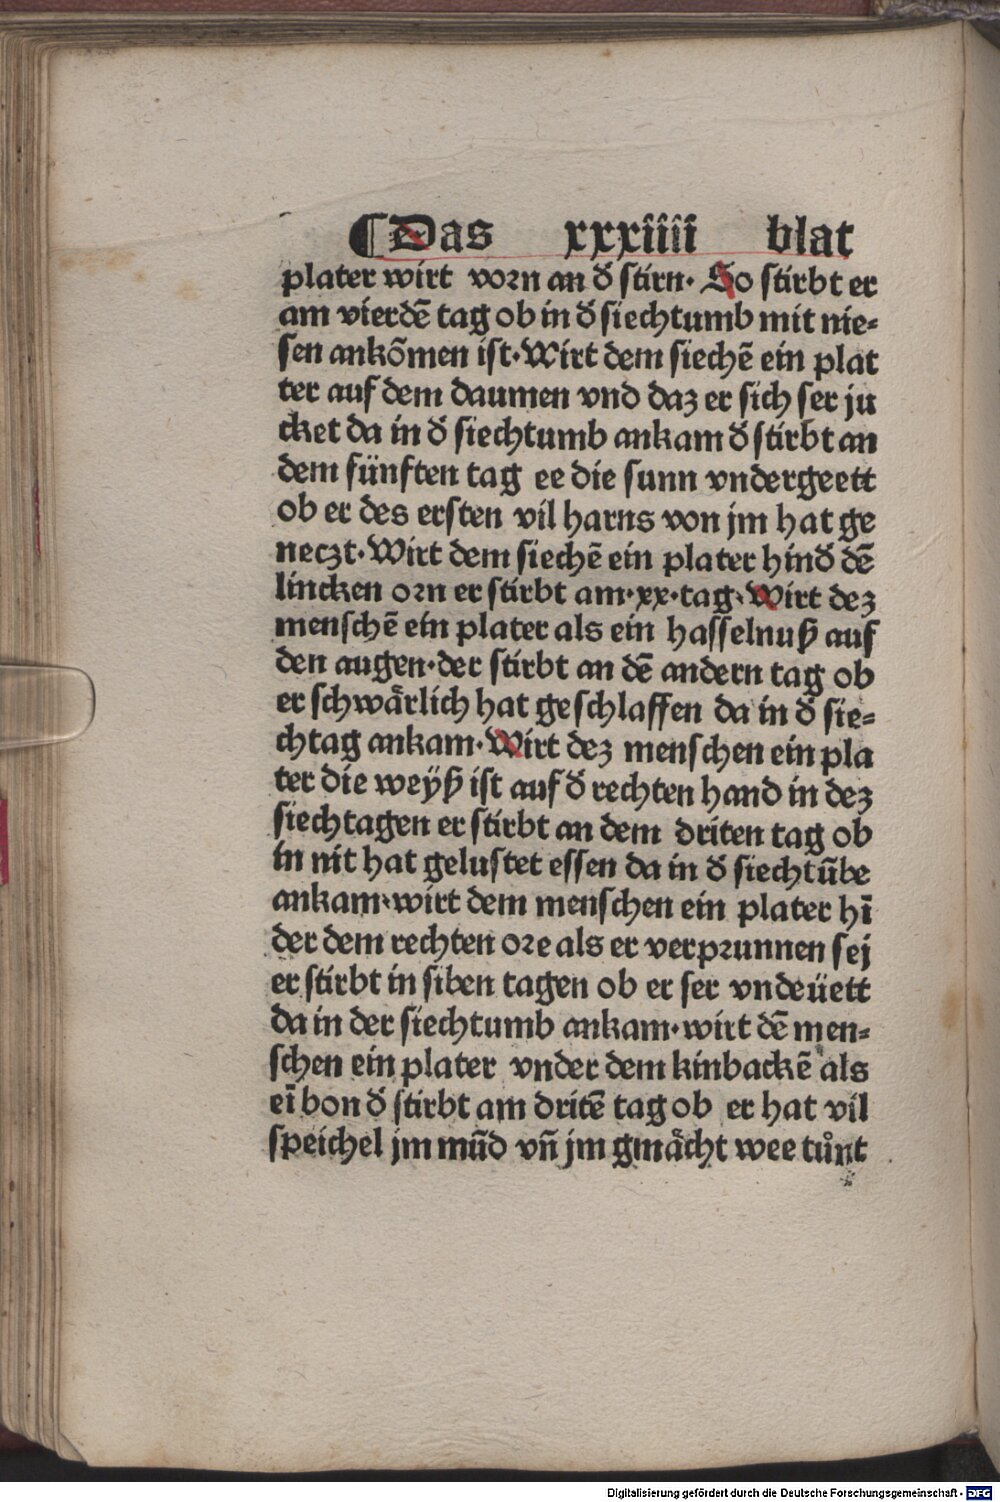 ¶ Das xxxiiii blat
plater wirt vorn an d̕ stirn. So stirbt er
am vierdē tag ob in d̕ siechtumb mit nie⸗
sen ankōmen ist. Wirt dem siechē ein plat
ter auf dem daumen vnd daz er sich ser ju
cket da in d̕ siechtumb ankam d̕ stirbt an
dem fünften tag ee die sunn vndergeett
ob er des ersten vil harns von jm hat ge
neczt. Wirt dem siechē ein plater hind̕ dē
lincken orn er stirbt am .xx. tag. Wirt dez
menschē ein plater als ein hasselnuß auf
den augen. der stirbt an dē andern tag ob
er schwaͤrlich hat geschlaffen da in d̕ sie⸗
chtag ankam. Wirt dez menschen ein pla
ter die weÿß ist auf d̕ rechten hand in dez
siechtagen er stirbt an dem driten tag ob
in nit hat gelustet essen da in d̕ siechtūbe
ankam. wirt dem menschen ein plater hī
der dem rechten ore als er verprunnen sej
er stirbt in siben tagen ob er ser vndeüett
da in der siechtumb ankam. wirt dē men⸗
schen ein plater vnder dem kinbackē als
eī bon d̕ stirbt am dritē tag ob er hat vil
speichel jm mūd vn̄ jm gmaͤcht wee tůnt
Digitalisierung gefördert durch die Deutsche Forschungsgemeinschaft - DFG